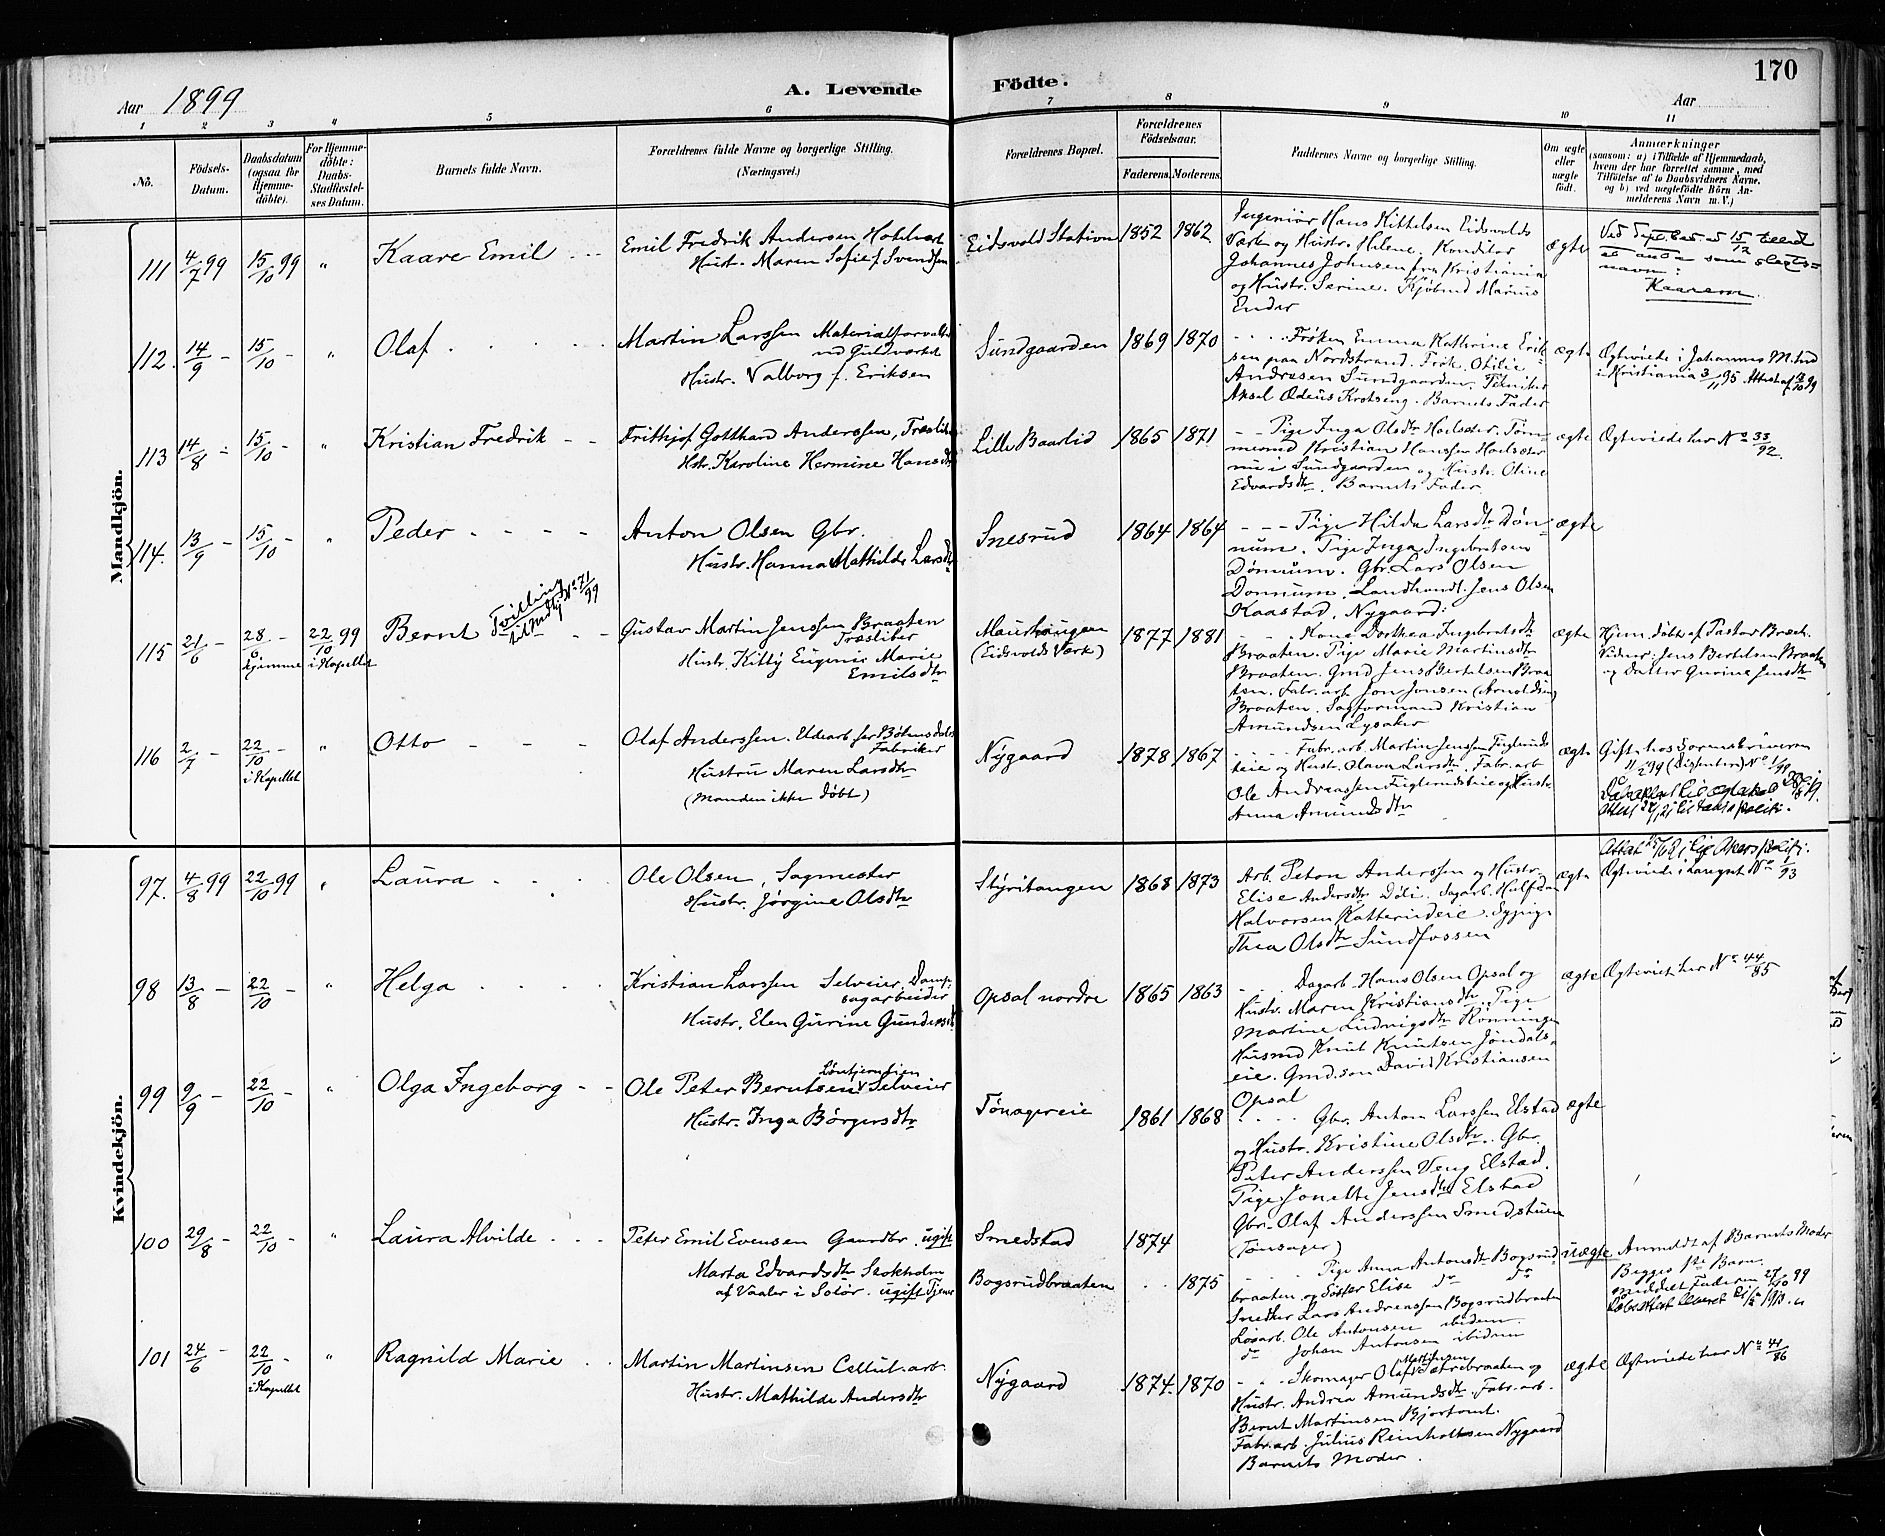 170
Aar 1899
A. Levende Födte.
Aar
1 2 3 4 5 6 7 8 9 10 11
No.
Födsels-Datum.
Daabsdatum (ogsaa for Hjemme-döbte).
For Hjemme-döbte: Daabs-Stadfæstel-ses Datum.
Barnets fulde Navn.
Forældrenes fulde Navne og borgerlige Stilling.
(Næringsvei.)
Forældrenes Bopæl.
Forældrenes Födselsaar.
Faderens. Moderens.
Faddernes Navne og borgerlige Stilling.
Om ægte eller uægte födt.
Anmærkninger
(saasom: a) i Tilfælde af Hjemmedaab,
hvem der har forrettet samme, med
Tilföielse af to Daabsvidners Navne,
og b) ved uægtefödte Börn An-
melderens Navn m. V.)
Mandkjön.
111 4/7 99 15/10 99 " Kaare Emil
Emil Fredrik Andersen
Hustr. Maren Sofie f. Svendsen
Eidsvold Station 1852 1862
Ingeniör Hans Kittelsen Eidsvolds
Værk og Hustr. Helene, Konditor
Johannes Johnsen fra Kristiania
og Hustr. Serine. Kjöbmd Marius
Ender
ægte
navn:
Kaarem.
112. 14/9 - 15/10 - " Olaf
Martin Larssen Materialforvalter
Hustr. Valborg f. Eriksen
Sundgaarden 1869 1870
Fröken Emma Kathrine Erik-
sen paa Nordstrand. Frök. Otilie
Andresen Sundgaarden. Tekniker
Aksel Barnets Fader
ægte
Ægteviede i Johannes M.hed
i Kristiania 3/11 95 Attest af
113 14/8 - 15/10 - " Kristian Fredrik
Frithjof Gotthard Anderssen,
Hstr. Karoline Hermine Hansdtr
Lille Baarlid 1865 1871
Pige Inga Olsdtr Töm-
mermd Kristian Hanssen
nu i Sundgaarden og Hustr. Oline
Edvardsdtr. Barnets Fader.
ægte
Ægteviede her No 33/92.
114. 13/9 - 15/10 - " Peder
Anton Olsen Gbr.
Hustr. Hanna Mathilde Larsdtr
Snesrud 1864 1864
Pige Hilda Larsdtr Dön-
num. Pige Inga Ingebretsen
Dönnum. Gbr. Lars Olsen
Dönnum. Landhandl. Jens Olsen
Kaastad, Nygaard.
ægte
115 21/6 28/6 - hjemme 22/10 99 i Kapellet
Bernt Tvilling til No 71/99
Gustav Martin Jenssen Braaten
Træsliber
Hustr. Kitty Eugenie Marie
Emilsdtr
(Eidsvolds Værk) 1877 1881
Kone Dorthea Ingebretsdtr
Braaten. Pige Marie Martinsdtr
Braaten. Gmd Jens Bertelsen Braa-
ten. Fabr. arb. Jon Jonsen
Braaten. Sagformand Kristian
Amundsen Lysaker
ægte
Hjem. döbt af Pastor
Vidner: Jens Bertelsen Braaten
og Datter Gurine Jensdtr
116 2/7 22/10 - i Kapellet " Otto
Olaf Anderssen. Bøhnsdalens
Fabriker
Hustru Maren Larsdtr
(Manden ikke døbt)
Nygaard 1878 1867
Fabr. arb. Martin Jenssen Fuglerud-
eie og Hustr. Olava Larsdtr. Fabr. arb.
Ole Andreassen Fuglerudseie og Hustr.
Anna Amundsdtr
ægte
Gift hos Sorenskriveren
11/2 99 (Dissenter) No 1/99
Kvindekjön.
97. 4/8 99 22/10 99 " Laura
Ole Olsen, Sagmester
Hustr. Jörgine Olsdtr
Styritangen 1868 1873
Arb. Anderssen og Hustr.
Elise Andersdtr Döli. Sagarb. Hulfdan
Halvorsen
Thea Olsdtr Sundfossen
ægte
Ægteviede i Langset No 1/93
98 13/8 - 22/10 - " Helga
Kristian Larssen Selveier. Damp-
sagarbeider
Hustr. Elen Gurine Gundersdtr
Opsal nordre 1865 1863
Dagarb. Hans Olsen Opsal og
Hustr. Maren Kristiansdtr. Pige
Martine Ludvigsdtr Rönningen
Husmd Knut Knutsen Jöndals-
eie. Gmd.son David Kristiansen
Opsal
ægte
Ægteviet her No 44/85
99 9/9 22/10 - " Olga Ingeborg
Ole Peter Berntsen Selveier
Hustr. Inga Börgersdtr
Tönsagereie 1861 1868
Gbr. Anton Larssen Elstad
og Hustr. Kristine Olsdtr. Gbr.
Peter Anderssen Veng Elstad.
Pige Jonette Jensdtr Elstad
Gbr. Olaf Anderssen Smedstuen
(Tönsager)
ægte
100 29/8 - 22/10 - " Laura Alvilde
Peter Emil Evensen Gaardbr. ugift
Marta Edvardsdtr Stokholm
af Vaaler i Solör. ugift Tjener
Smedstad 1874
Bogsrudbraaten . . 1875
Pige Anna Antonsdtr Bogsrud-
braaten og Söster Elise do do
Snedker Lars Andreassen Bogsrudbraaten
Lösarb. Ole Antonsen ibidem.
do Johan Antonsen ibidem
uægte
Anmeldt af Barnets Moder
Begges 1ste Barn.
meddelt Faderen 27/10 99
101 24/6 - 22/10 - i Kapellet " Ragnild Marie
Martin Martinsen Cellul. arb.
Hustr. Mathilde Andersdtr
Nygaard 1874. 1870
Skomager Olaf Martinsen Sætrebraaten og
Hustr. Andrea Amundsdtr. Fabr. arb.
Bernt Martinsen Bjortomt.
Fabr. arb. Julius Reinholtsen Nygaard
Barnets Moder.
ægte
Ægteviede her No 41/86